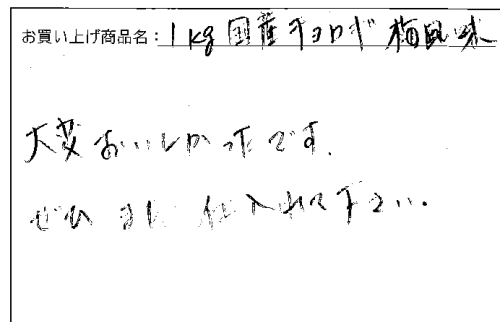 お買い上げ商品名：1kg国産チョロギ 梅風味
大変おいしかったです.
ぜひ また 仕入れて下さい.